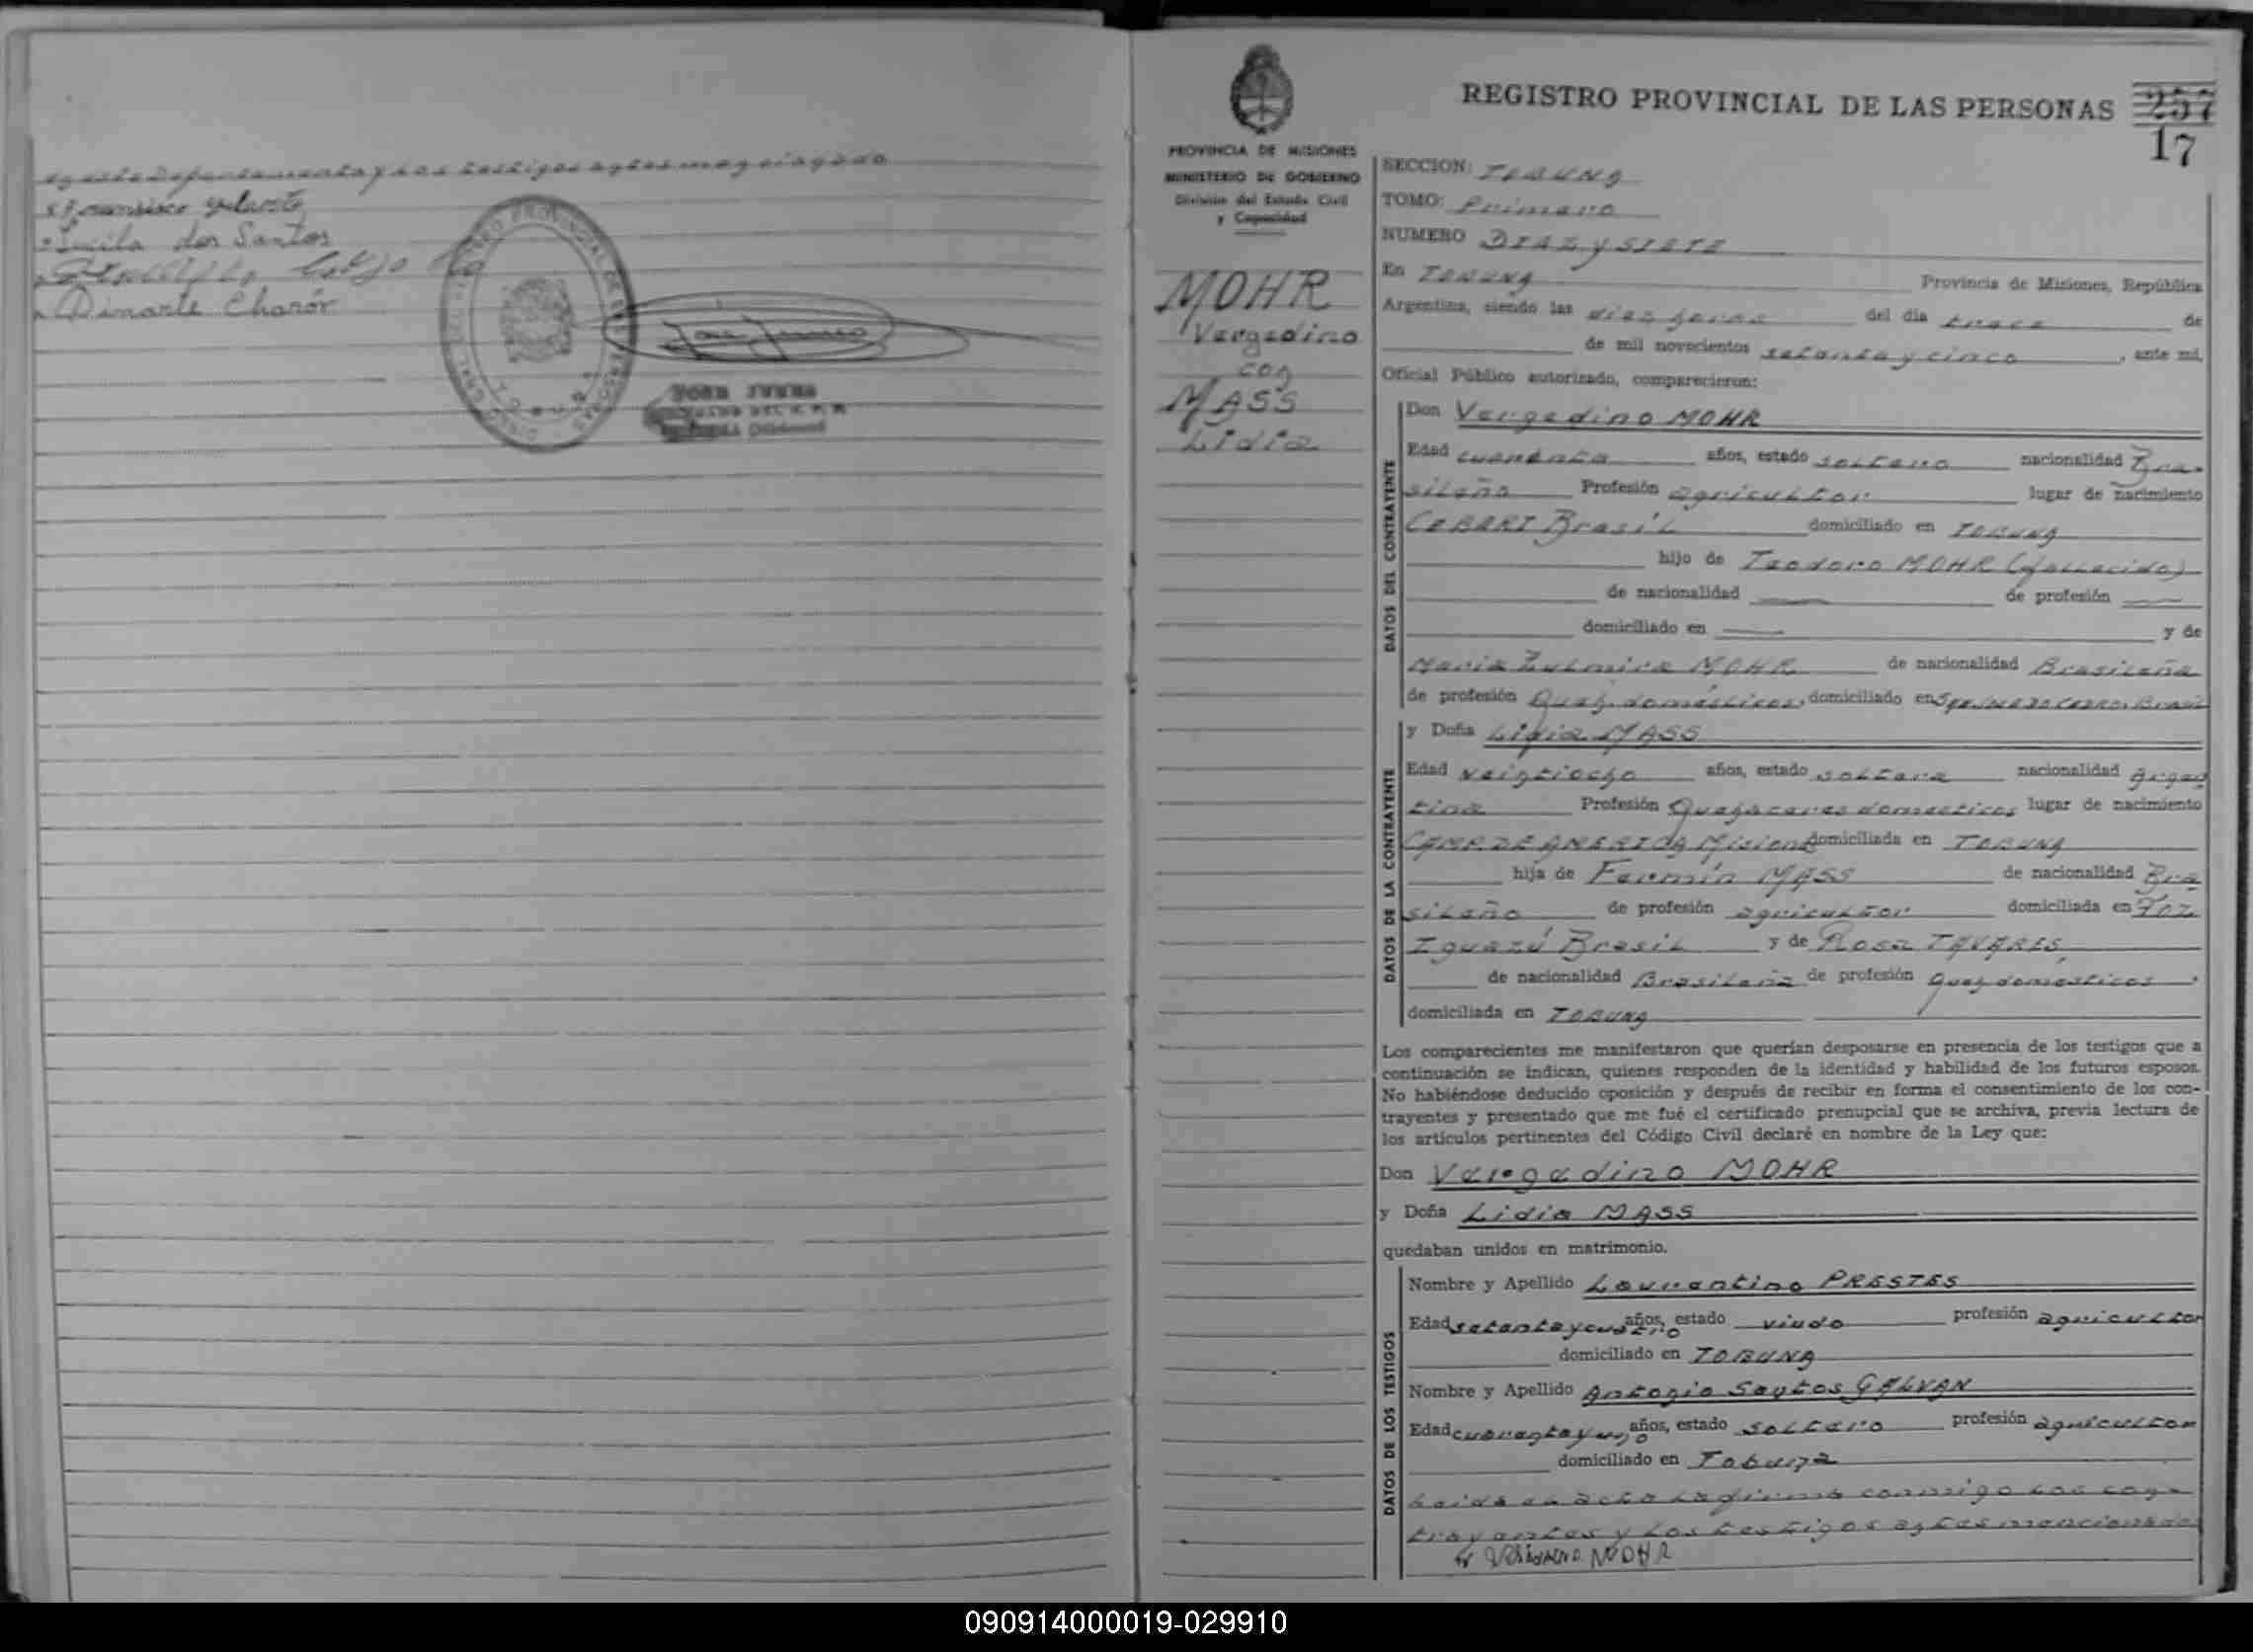 y los testigos
Lucila dos Santos
Dinarte Chamór
REGISTRO PROVINCIAL DE LAS PERSONAS
257
17
PROVINCIA DE MISIONES
MINISTERIO DE GOBIERNO
División del Estado Civil
y Capacidad
MOHR
Vergedino
con
MASS
Lidia
SECCION: TOBUNA
TOMO: Primero
NUMERO DIEZ y SIETE
En TOBUNA Provincia de Misiones, República
Argentina, siendo las diez horas del día trece de
de mil novecientos setenta y cinco, ante mi,
Oficial Público autorizado, comparecieron:
DATOS DEL CONTRAYENTE
Don Vergedino MOHR
Edad cuarenta años, estado soltero nacionalidad Bra-
sileño Profesión agricultor lugar de nacimiento
Brasil domiciliado en TOBUNA
hijo de Teodoro MOHR (fallecido)
de nacionalidad de profesión
domiciliado en y de
Maria Zulmira MOHR de nacionalidad Brasileña
de profesión Queh. domésticos, domiciliado en Brasil
DATOS DE LA CONTRAYENTE
y Doña Lidia MASS
Edad veintiocho años, estado soltera nacionalidad Argen
tina Profesión Quehaceres domesticos lugar de nacimiento
AMERICA Misiones domiciliada en TOBUNA
hija de Fermín MASS de nacionalidad Bra
sileño de profesión agricultor domiciliada en Foz
Iguazú Brasil y de Rosa TAVARES
de nacionalidad Brasileña de profesión Queh domésticos
domiciliada en TOBUNA
Los comparecientes me manifestaron que querían desposarse en presencia de los testigos que a
continuación se indican, quienes responden de la identidad y habilidad de los futuros esposos.
No habiéndose deducido oposición y después de recibir en forma el consentimiento de los con-
trayentes y presentado que me fué el certificado prenupcial que se archiva, previa lectura de
los artículos pertinentes del Código Civil declaré en nombre de la Ley que:
Don Vergedino MOHR
y Doña Lidia MASS
quedaban unidos en matrimonio.
DATOS DE LOS TESTIGOS
Nombre y Apellido Laurentino PRESTES
Edad setenta y cuatro años, estado viudo profesión agricultor
domiciliado en TOBUNA
Nombre y Apellido Antonio Santos GALVAN
Edad cuarenta y uno años, estado soltero profesión agricultor
domiciliado en Tobuna
Leida el acta la firma conmigo los con-
trayentes y los testigos antes mencionados
MOHR
090914000019-029910